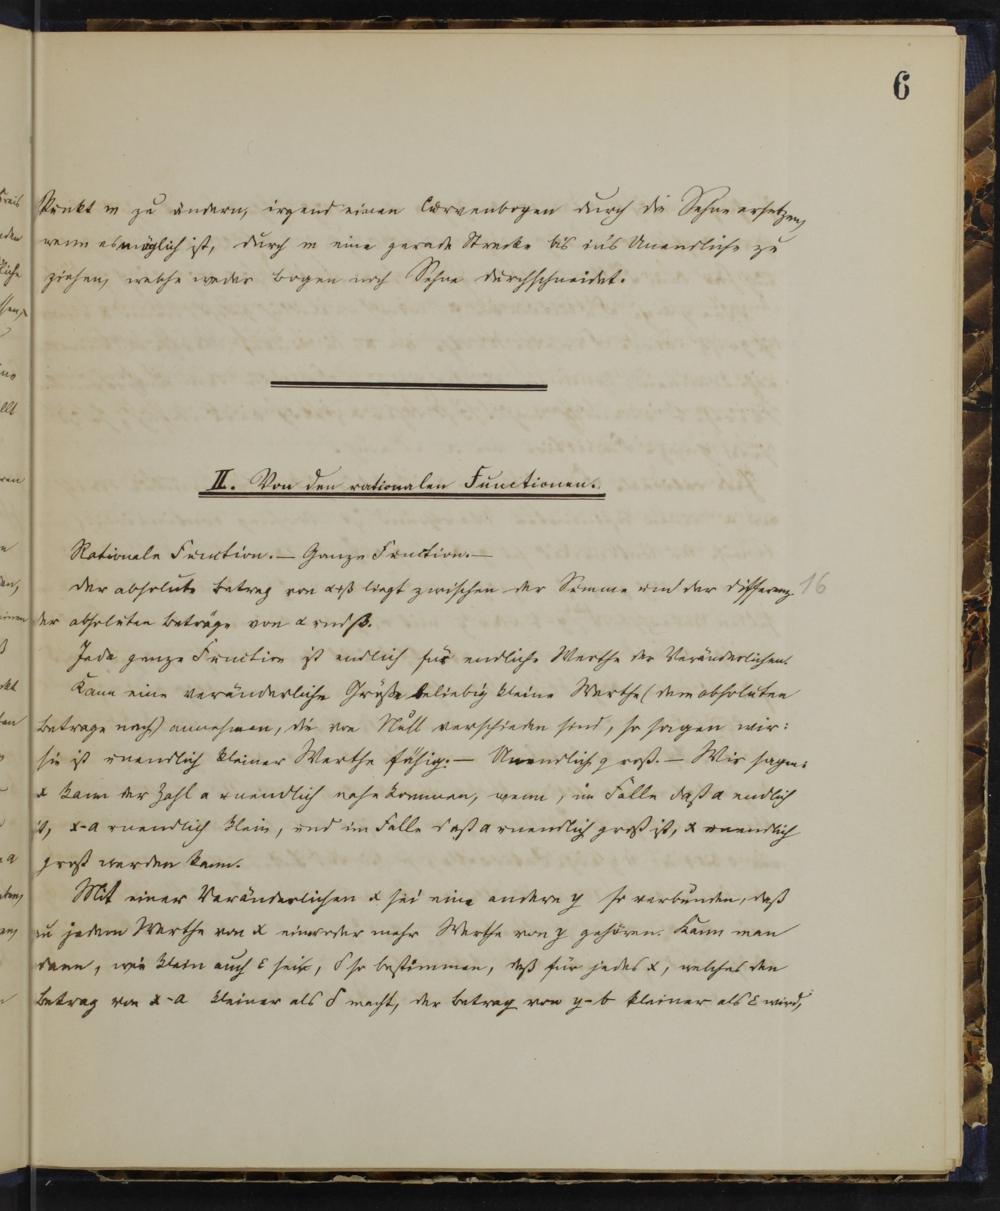 6
Punkt m zu ändern, irgend einen Curvenbogen durch die Sehne ersetzen,
wenn es möglich ist, durch m eine gerade Strecke bis ins Unendliche zu
ziehen, welche weder Bogen noch Sehne durchschneidet.
II. Von den rationalen Functionen.
Rationale Function. — Ganze Function. —
Der absolute Betrag von α+β liegt zwischen der Summe und der Differenz 16
der absoluten Beträge von α und β.
Jede ganze Function ist endlich für endliche Werthe der Veränderlichen.
Kann eine veränderliche Größe beliebig kleine Werthe (dem absoluten
Betrage nach) annehmen, die von Null verschieden sind, so sagen wir:
sie ist unendlich kleiner Werthe fähig. — Unendlich groß. — Wir sagen:
x kann der Zahl a unendlich nahe kommen, wenn, im Falle daß a endlich
ist, x-a unendlich klein, und im Falle daß a unendlich groß ist, x unendlich
groß werden kann.
Mit einer Veränderlichen x sei eine andere y so verbunden, daß
zu jedem Werthe von x ein oder mehr Werthe von y gehören. Kann man
dann, wie klein auch ε sei, δ so bestimmen, daß für jedes x, welches den
Betrag von x-a kleiner als δ macht, der Betrag von y-b kleiner als ε wird,